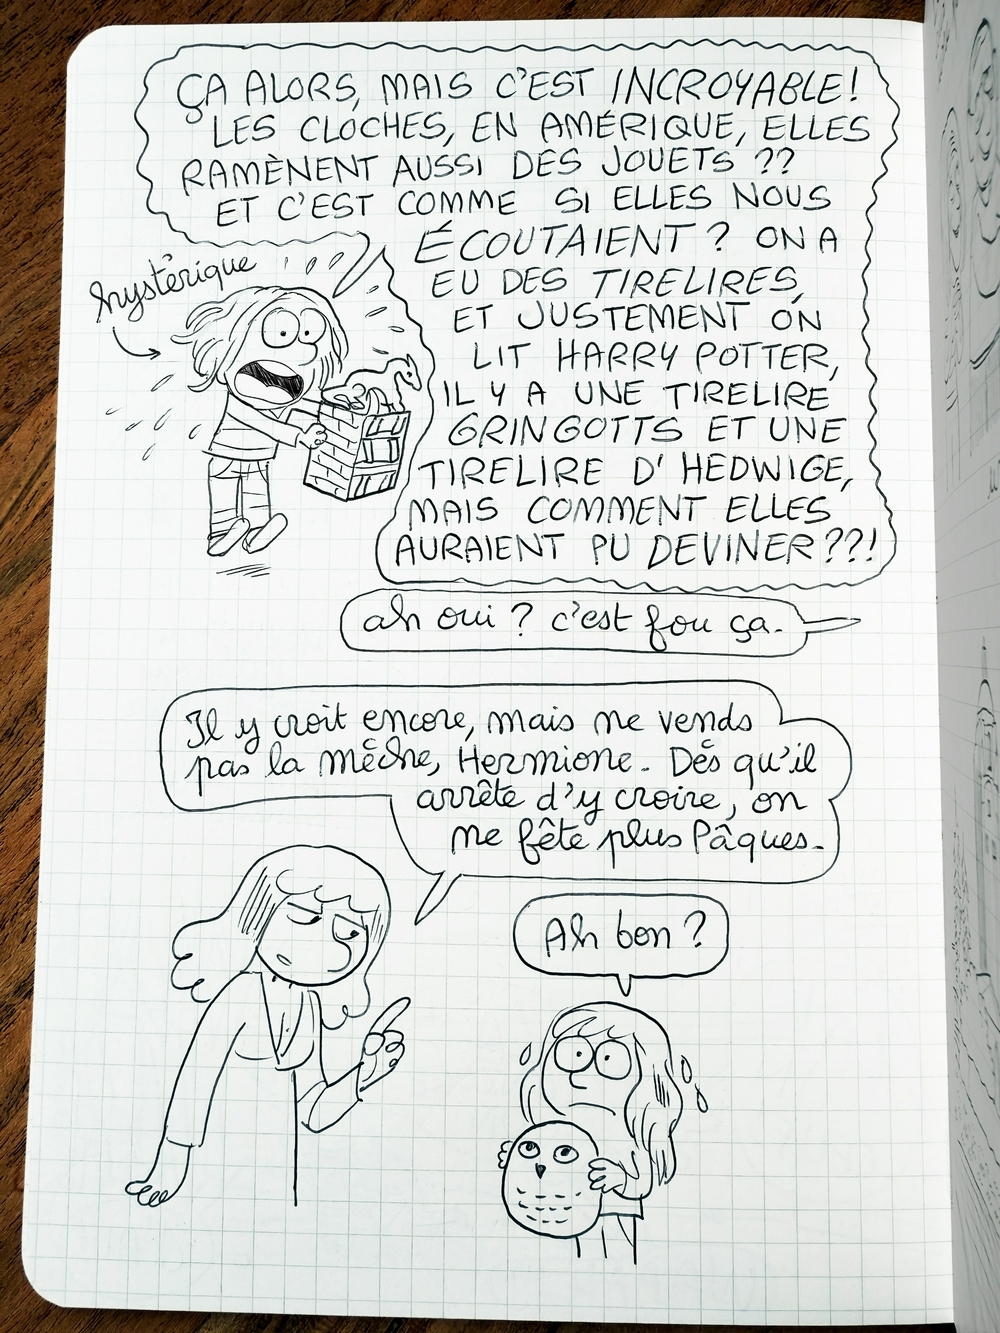 ÇA ALORS, MAIS C'EST INCROYABLE!
LES CLOCHES, EN AMÉRIQUE, ELLES
RAMÈNENT AUSSI DES JOUETS ??
ET C'EST COMME SI ELLES NOUS
ÉCOUTAIENT ? ON A
EU DES TIRELIRES,
ET JUSTEMENT ON
LIT HARRY POTTER,
IL Y A UNE TIRELIRE
GRINGOTTS ET UNE
TIRELIRE D'HEDWIGE,
MAIS COMMENT ELLES
AURAIENT PU DEVINER ??!
hystérique
ah oui ? c'est fou ça.
Il y croit encore, mais ne vends
pas la mèche, Hermione. Dès qu'il
arrête d'y croire, on
ne fête plus Pâques.
Ah bon ?